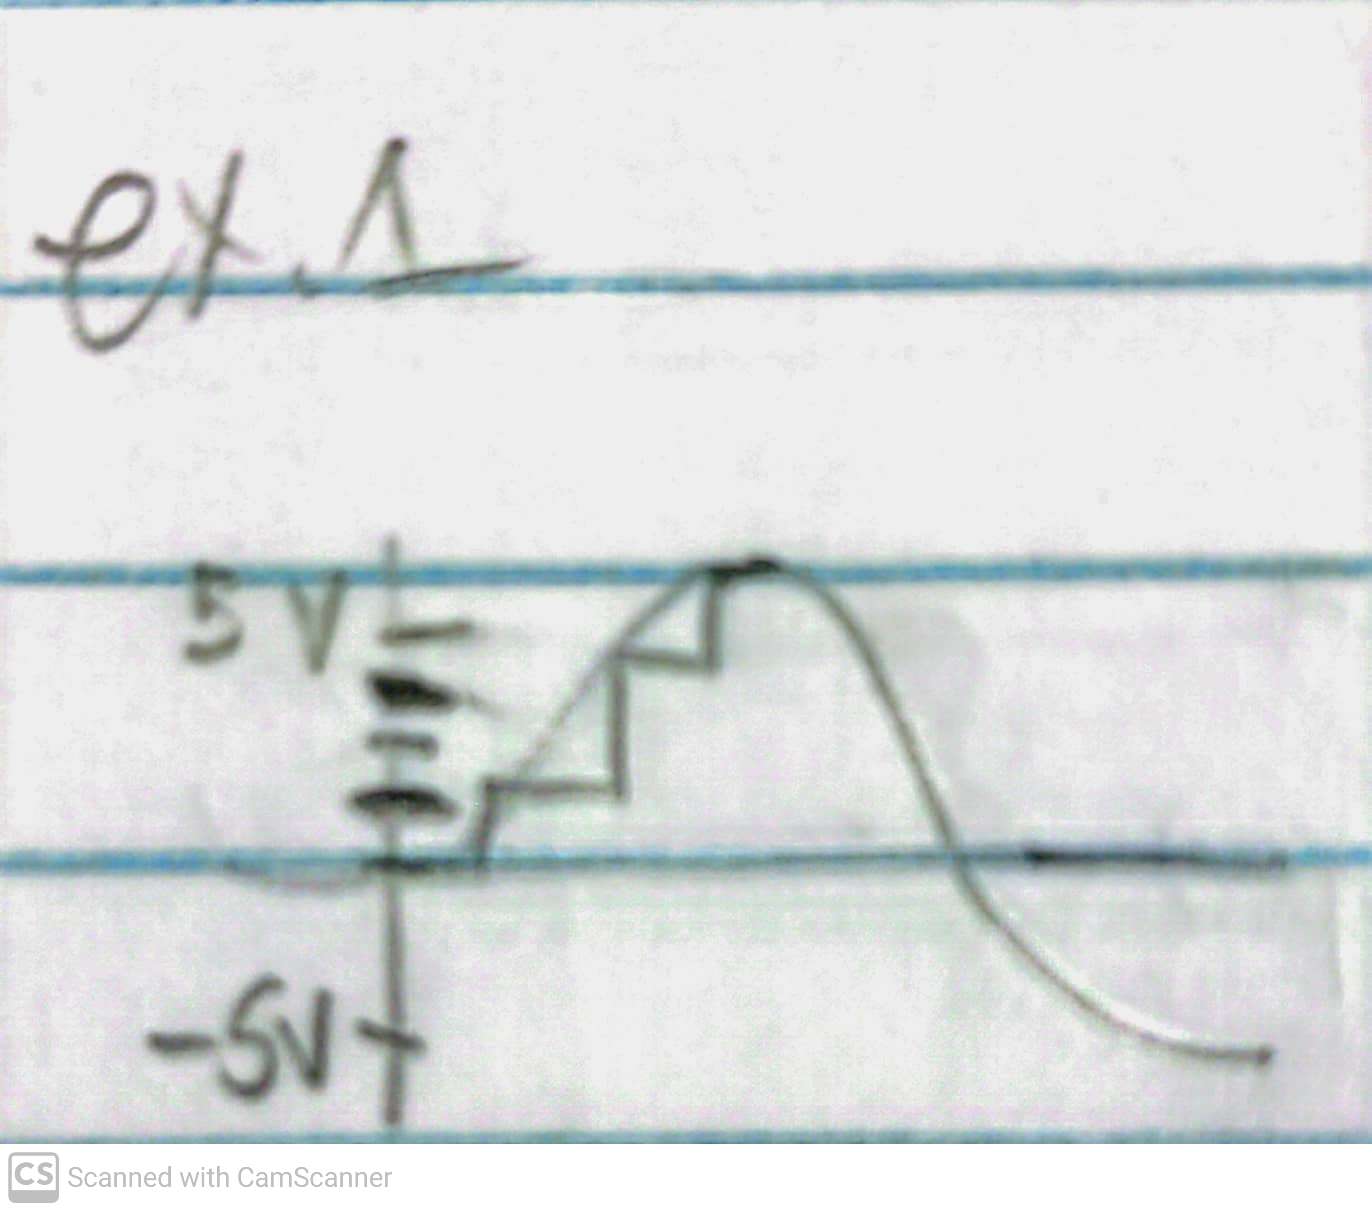 ex. 1
5V
-5V
CS Scanned with CamScanner